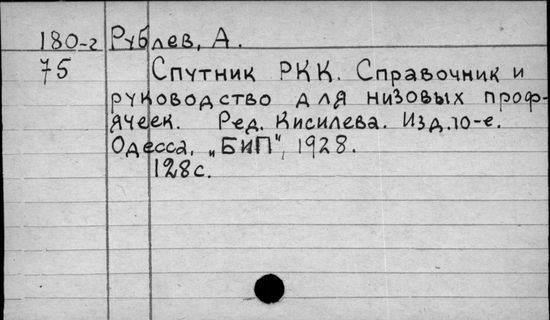 180-г Рублев, А.
75 Спутник РКК. Справочник и
руководство для низовых проф-
ячеек. Ред. Кисилева. Изд. 10-е.
Одесса, „БИП", 1928.
128с.